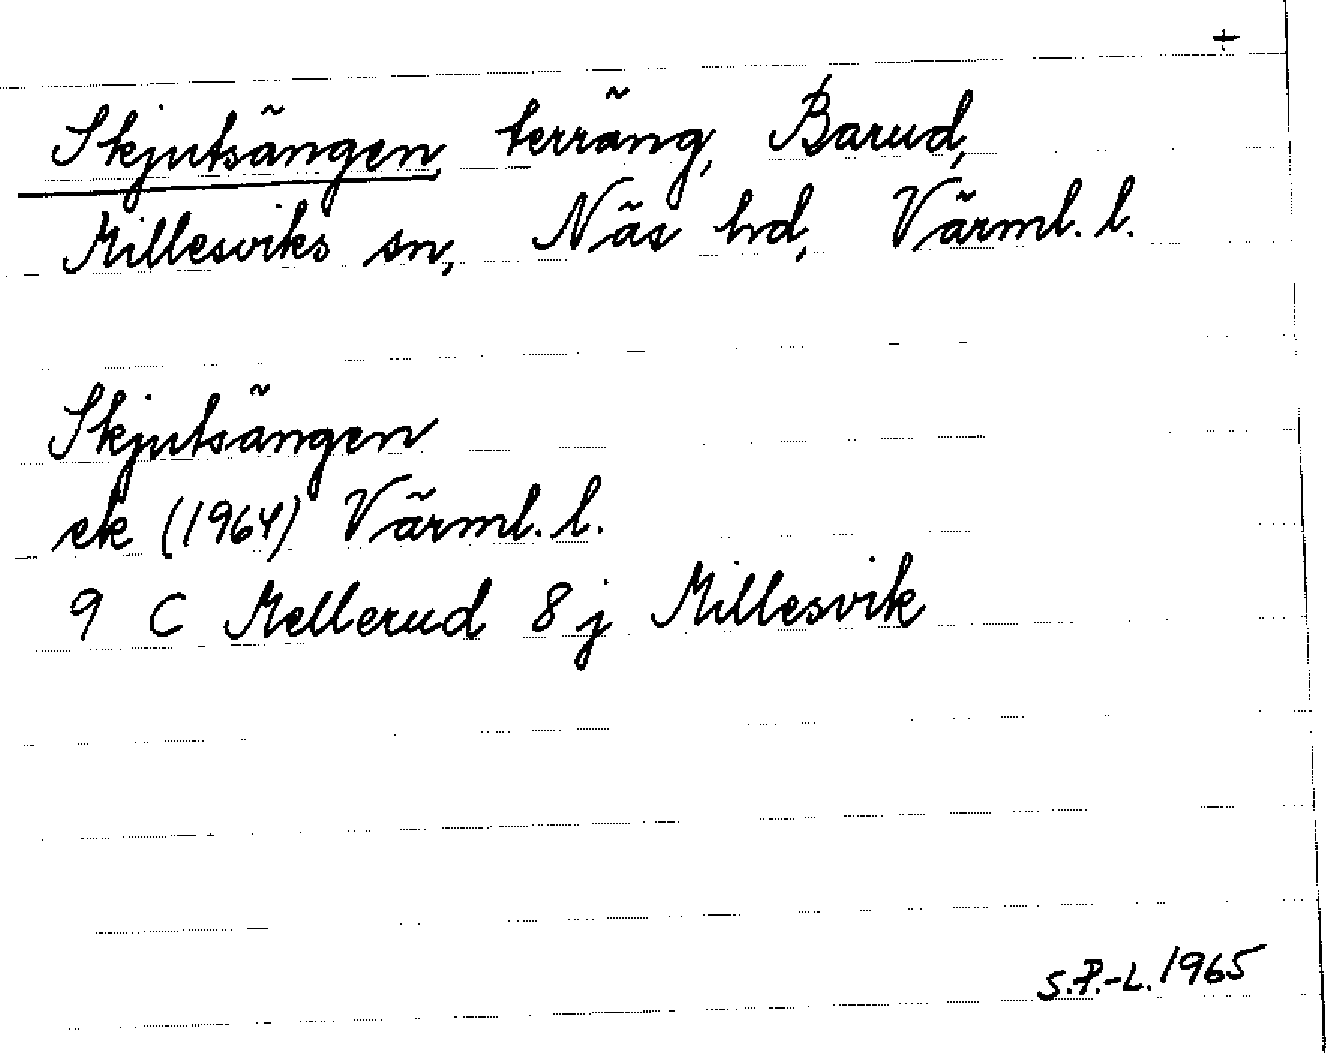 +
Skjutsängen, terräng, Barud,
Millesviks sn, Näs hd, Värml. l.
Skjutsängen
ek (1964) Värml. l.
9 C Mellerud 8 j Millesvik
S.P.-L. 1965